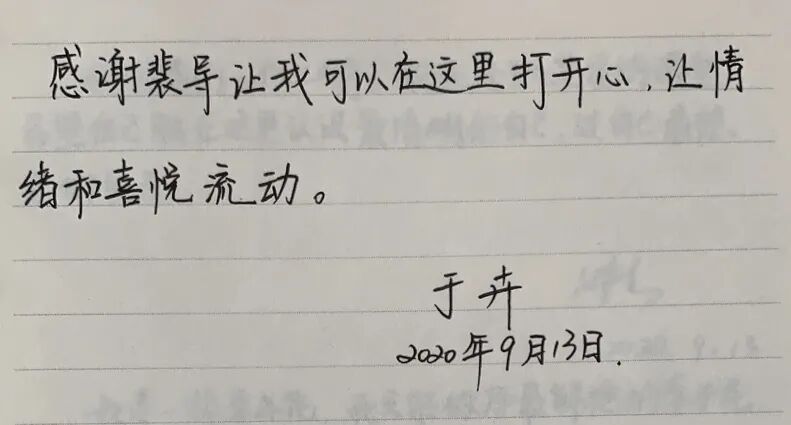 感谢裴导让我可以在这里打开心,让情
绪和喜悦流动。
于卉
2020年9月13日.